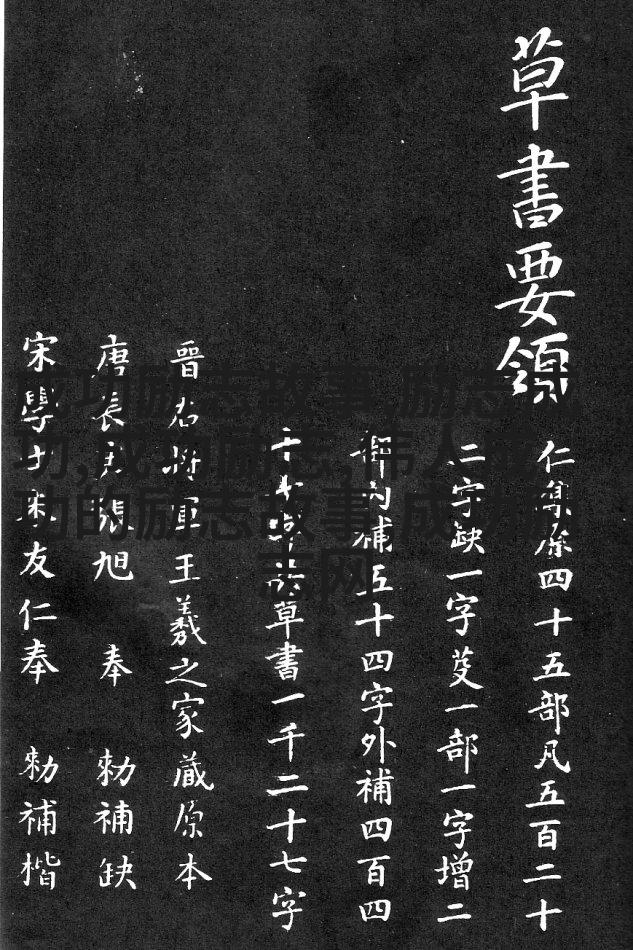 草書要領
仁集原四十五部凡五百二十
二字缺一字芟一部一字增二
部內補五十四字外補四百四
十七共草書一千二十七字
晉右將軍王羲之家藏原本
唐長史張旭 奉 勑補缺
宋學士米友仁奉 勑補楷
成功励志故事,励志成
功,成功励志,伟人成
功的励志故事,成功励
志网